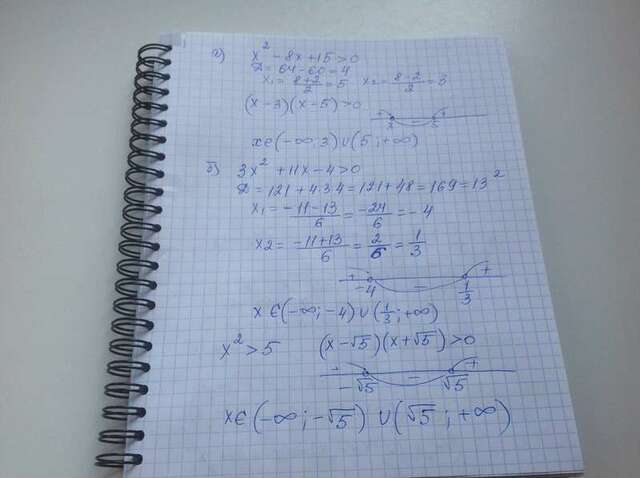 а) x² - 8x + 15 > 0
D = 64 - 60 = 4
x₁ = (8+2)/2 = 5 x₂ = (8-2)/2 = 3
(x-3)(x-5) > 0
+ 3 - 5 +
x ∈ (-∞; 3) ∪ (5; +∞)
б) 3x² + 11x - 4 > 0
D = 121 + 4·3·4 = 121 + 48 = 169 = 13²
x₁ = (-11-13)/6 = -24/6 = -4
x₂ = (-11+13)/6 = 2/6 = 1/3
+ -4 - 1/3 +
x ∈ (-∞; -4) ∪ (1/3; +∞)
x² > 5 (x-√5)(x+√5) > 0
+ -√5 - √5 +
x ∈ (-∞; -√5) ∪ (√5; +∞)